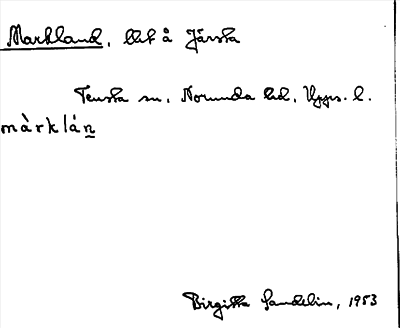 Markland, bbt å Järsta
Tensta sn, Norunda hd, Upps. l.
màrklán̰
Birgitta Sandelin, 1953